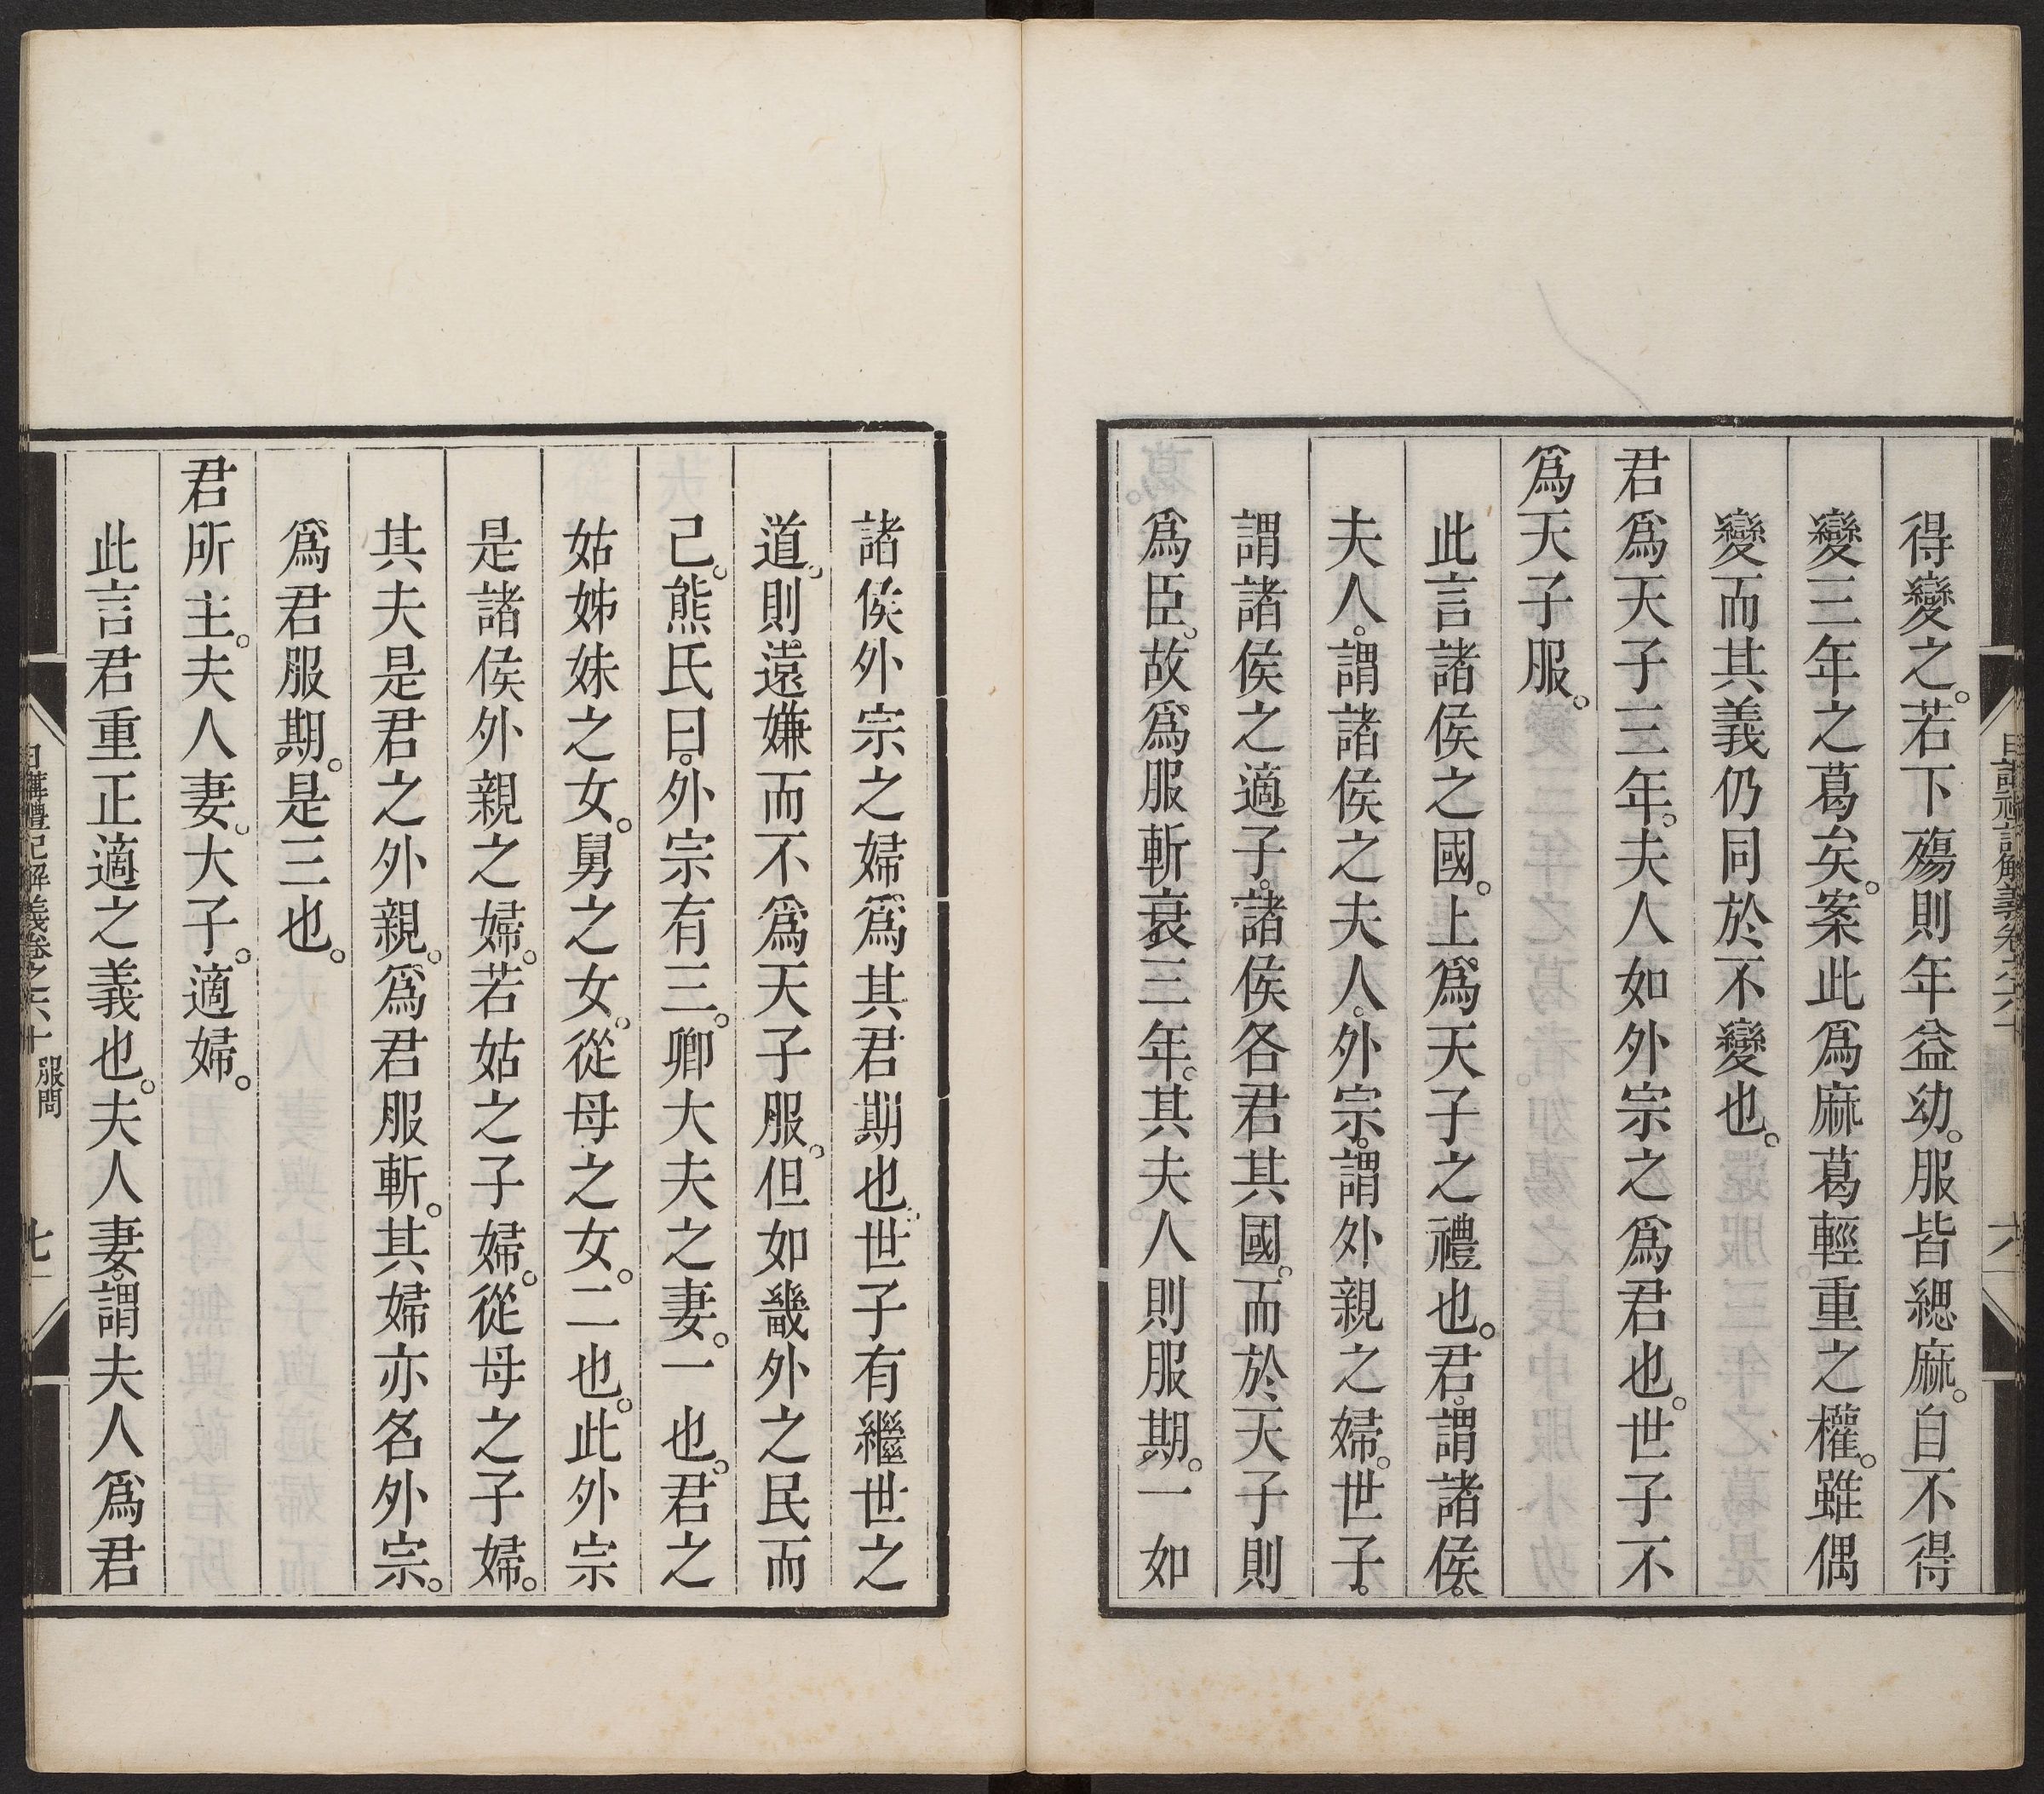 得變之。若下殤則年益幼。服皆緦麻。自不得
變三年之葛矣。案此爲麻葛輕重之權。雖偶
變而其義仍同於不變也。
君爲天子三年。夫人如外宗之爲君也。世子不
爲天子服。
此言諸侯之國。上爲天子之禮也。君。謂諸侯。
夫人。謂諸侯之夫人。外宗。謂外親之婦。世子。
謂諸侯之適子。諸侯各君其國。而於天子則
爲臣。故爲服斬衰三年。其夫人則服期。一如
諸侯外宗之婦爲其君期也。世子有繼世之
道。則遠嫌而不爲天子服。但如畿外之民而
己。熊氏曰。外宗有三。卿大夫之妻。一也。君之
姑姊妹之女。舅之女。從母之女。二也。此外宗
是諸侯外親之婦。若姑之子婦。從母之子婦。
其夫是君之外親。爲君服斬。其婦亦名外宗。
爲君服期。是三也。
君所主。夫人妻。大子。適婦。
此言君重正適之義也。夫人妻。謂夫人爲君
日講禮記解義卷之六十 服問 七